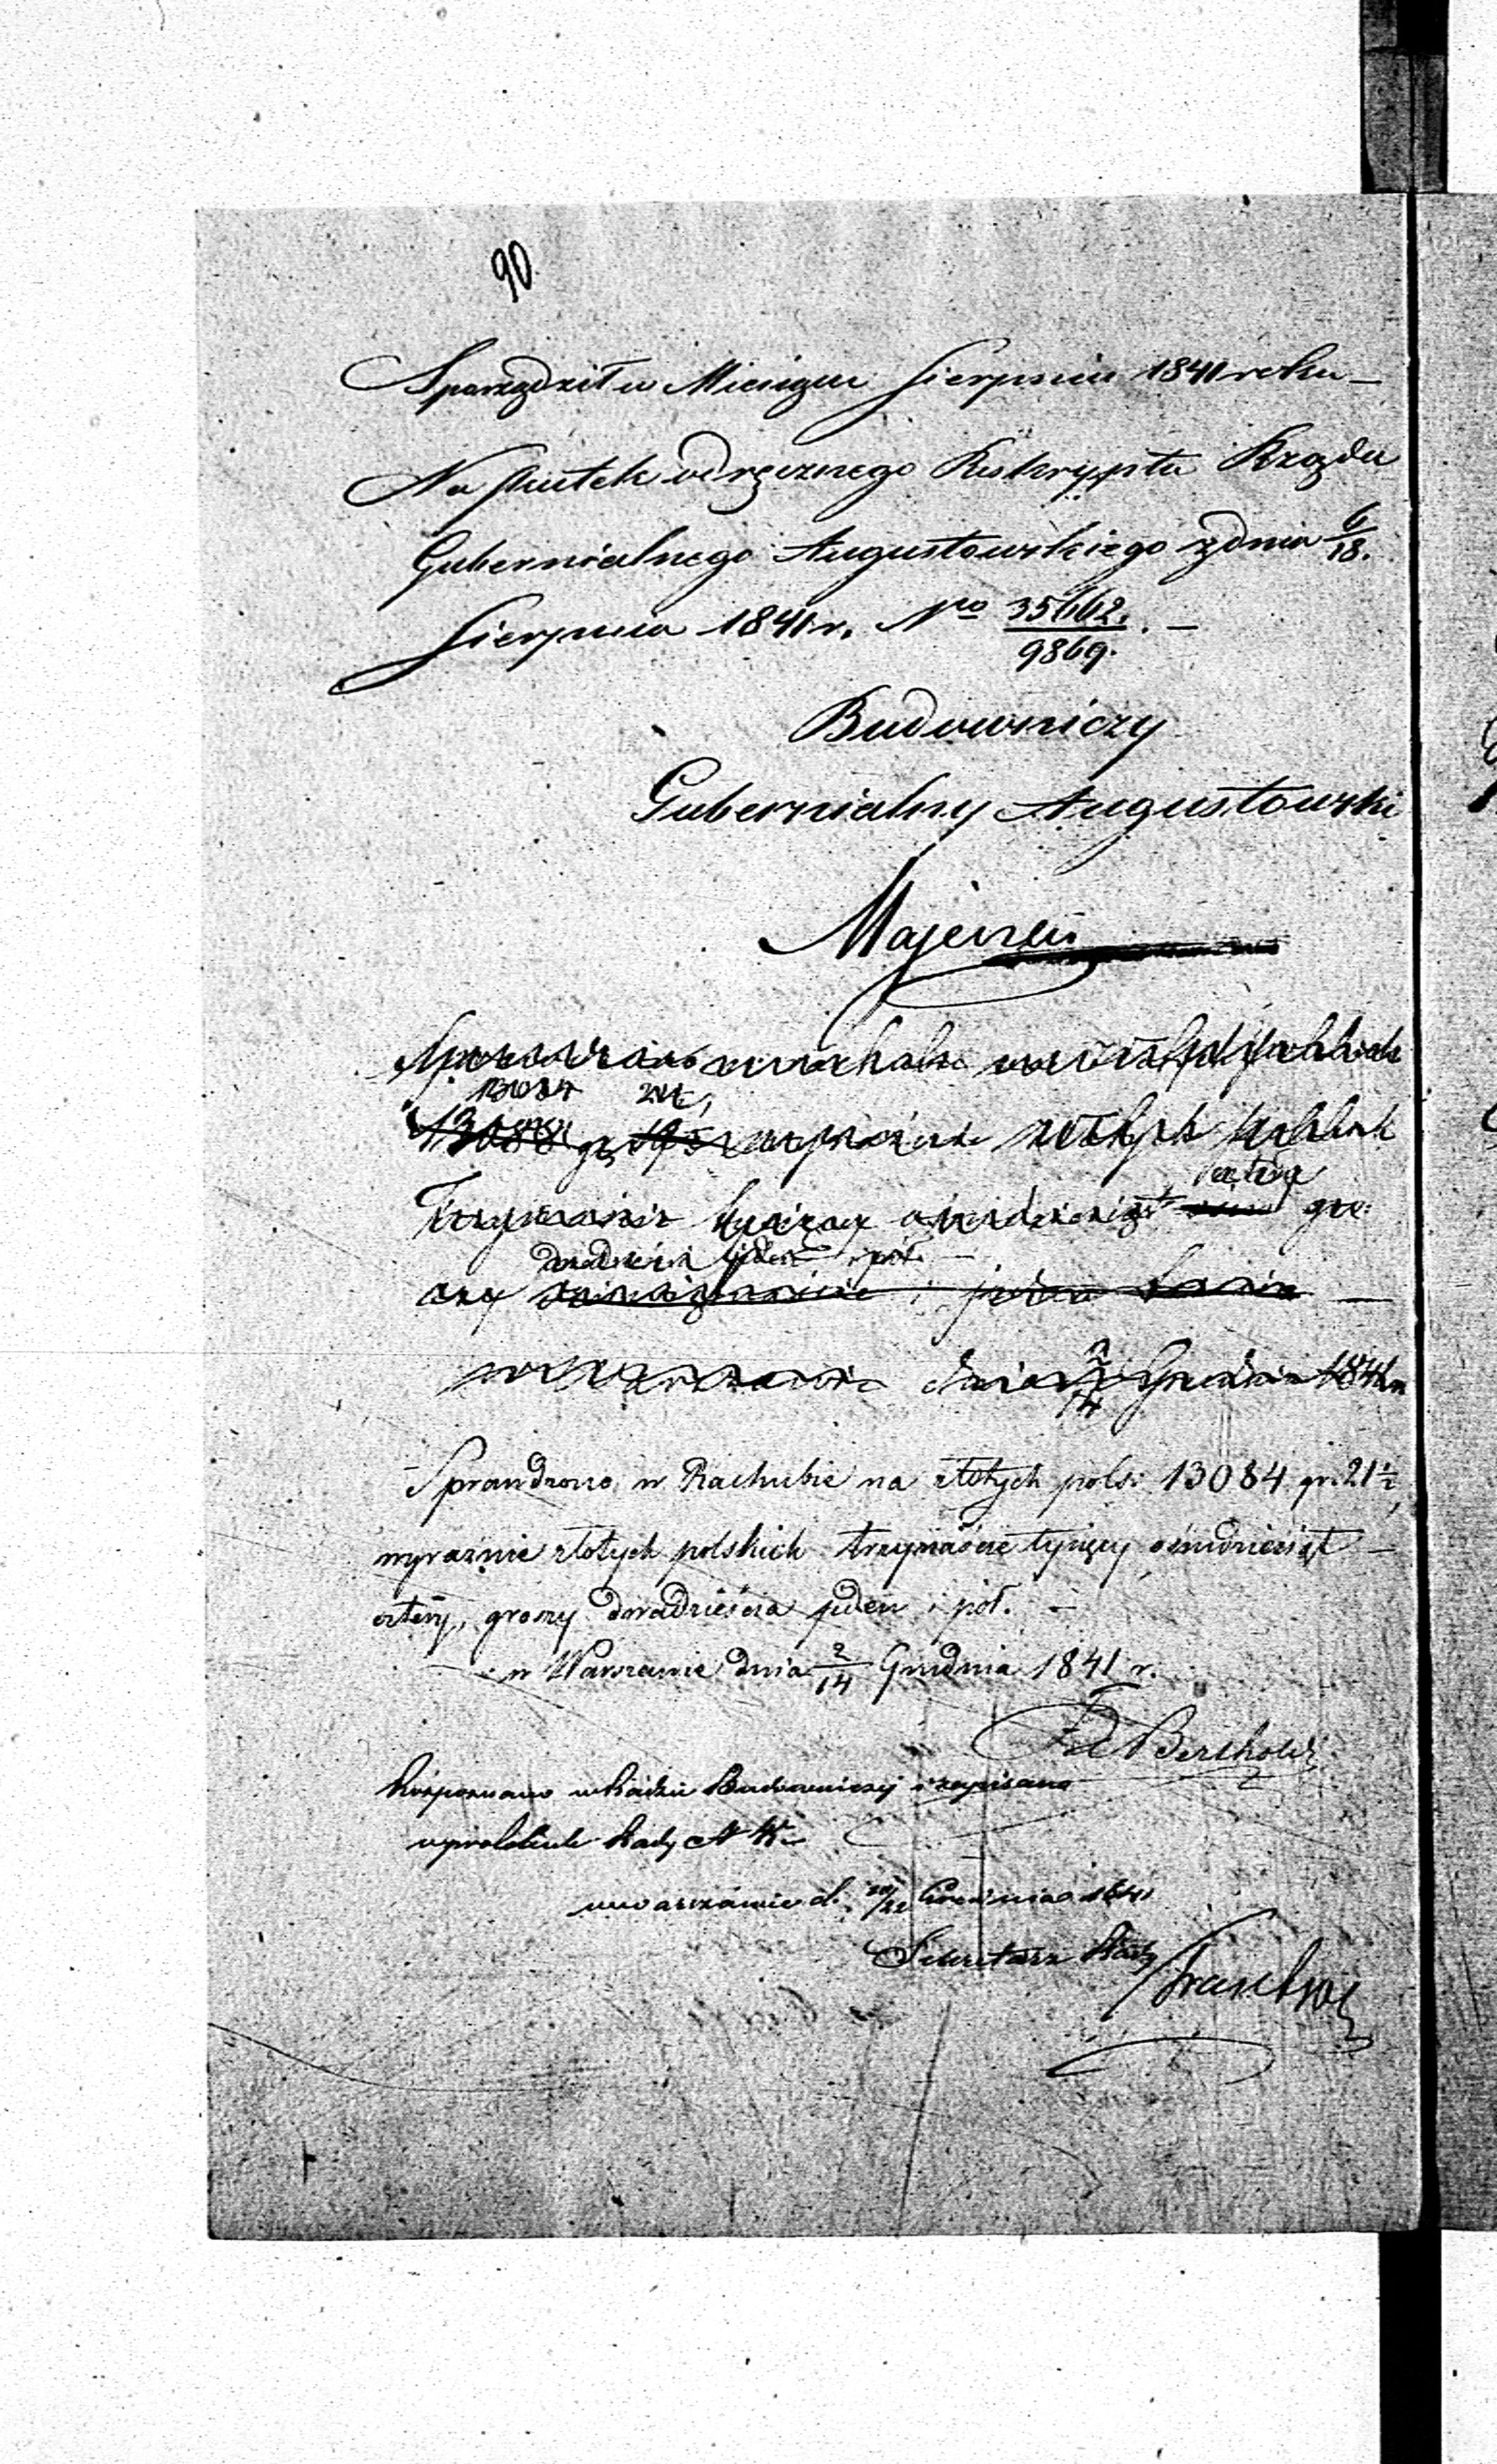 90
Sporządził w Miesiącu Sierpniu 1841 roku –
Na skutek odręcznego Reskryptu Rządu
Gubernialnego Augustowskiego z dnia 6/18.
Sierpnia 1841 r. Nro 35662./9869. –
Budowniczy
Gubernialny Augustowski
Majewski
Sprawdzono w rachubie na złotych polskich
13084 21½
13088 gr 19 wyraźnie złotych polskich
cztery
Trzynaście tysięcy ośmdziesiąt gro:
dwadzieścia jeden i pół –
szy
w Warszawie dnia 2/14 Grudnia 1841 r
Sprawdzono w Rachubie na złotych pols: 13084 gr. 21½,
wyraźnie złotych polskich trzynaście tysięcy ośmdziesiąt –
cztery, groszy dwadzieścia jeden i pół. –
w Warszawie dnia 2/14 Grudnia 1841 r.
Berthold
Rozpoznano w Radzie Budowniczej i zapisano
w protokule Rady N
w Warszawie d. Grudnia 1841
Sekretarz Rady